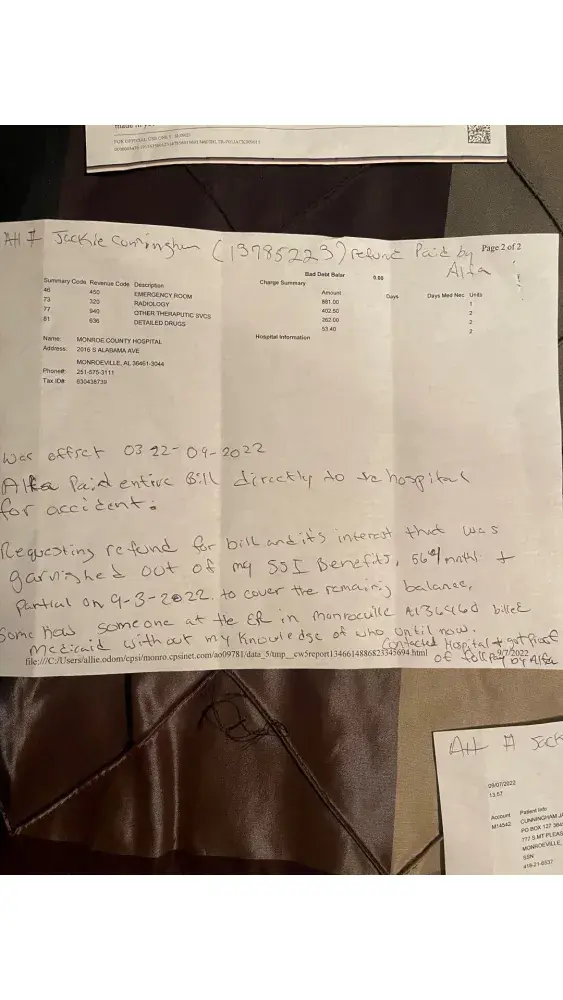 FOR OFFICIAL USE ONLY
Att # Jackie Cunningham (13785223) refund Paid by
Alfa
Page 2 of 2
Bad Debt Balar 0.00
Charge Summary
Summary Code Revenue Code Description Amount Days Days Med Nec Units
46 450 EMERGENCY ROOM 881.00 1
73 320 RADIOLOGY 402.50 2
77 940 OTHER THERAPUTIC SVCS 262.00 2
81 636 DETAILED DRUGS 53.40 2
Hospital Information
Name: MONROE COUNTY HOSPITAL
Address: 2016 S ALABAMA AVE
MONROEVILLE, AL 36461-3044
Phone#: 251-575-3111
Tax ID# 630438739
Was offset 03 22-09-2022
Alfa Paid entire Bill directly to the hospital
for accident.
Requesting refund for bill and it's interest that was
garnished out of my SSI Benefits,
Partial on 9-3-2022. to cover the remaining balance,
Some How someone at the ER in Monroeville Al 36460 billed
Medicaid without my Knowledge of who until now.
Contacted Hospital + got proof
of full pay by Alfa
file:///C:/Users/allie.odom/cpsi/monro.cpsinet.com/ao09781/data_5/tmp__cw5report1346614886823345694.html 9/7/2022
Att # Jack
09/07/2022
13:57
Account Patient Info
M14542 CUNNINGHAM JA
PO BOX 122
777 S MT PLEAS
MONROEVILLE,
SSN